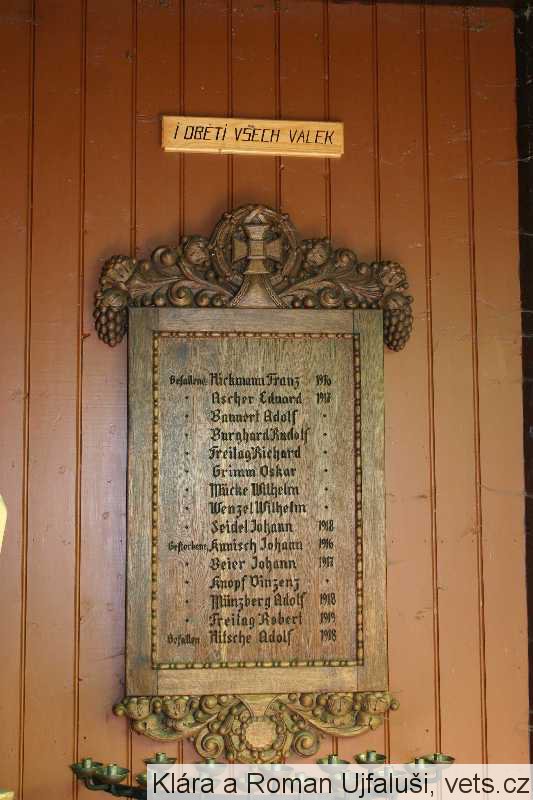 I OBĚTÍ VŠECH VÁLEK
Gefallene: Hickmann Franz 1916
" Ascher Eduard 1917
" Bannert Adolf "
" Burghard Rudolf "
" Freitag Richard "
" Grimm Oskar "
" Mücke Wilhelm "
" Wenzel Wilhelm "
" Seidel Johann 1918
Gestorben: Kunisch Johann 1916
" Beier Johann 1917
" Knopf Vinzenz "
" Münzberg Adolf 1918
" Freitag Robert 1919
Gefallen Nitsche Adolf 1918
Klára a Roman Ujfaluši, vets.cz